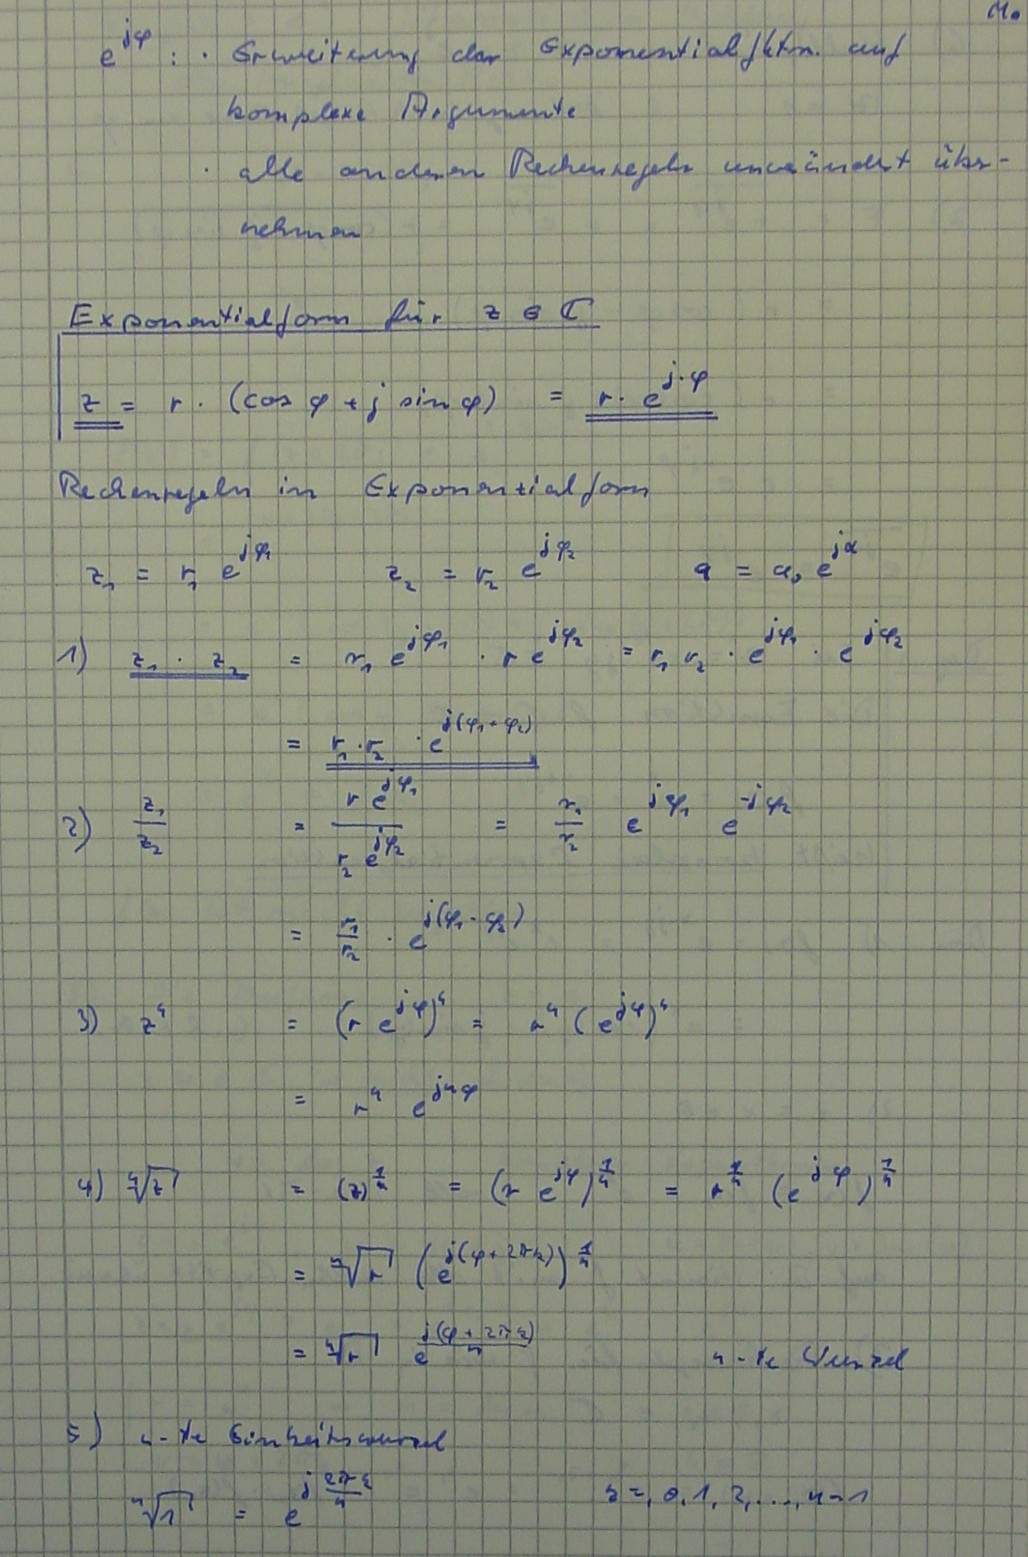 e^{jφ} : · Erweiterung der Exponentialfktn. auf
komplexe Argumente
· alle anderen Rechenregeln unverändert über-
nehmen
Exponentialform für z ∈ ℂ
z = r · (cos φ + j sin φ) = r · e^{j·φ}
Rechenregeln in Exponentialform
z₁ = r₁ e^{jφ₁} z₂ = r₂ e^{jφ₂} a = a₀ e^{jα}
1) z₁ · z₂ = r₁ e^{jφ₁} · r e^{jφ₂} = r₁ r₂ · e^{jφ₁} · e^{jφ₂}
= r₁ · r₂ · e^{j(φ₁+φ₂)}
2) z₁/z₂ = r e^{jφ₁} / r₂ e^{jφ₂} = r₁/r₂ e^{jφ₁} e^{-jφ₂}
= r₁/r₂ · e^{j(φ₁-φ₂)}
3) zⁿ = (r e^{jφ})ⁿ = rⁿ (e^{jφ})ⁿ
= rⁿ e^{jnφ}
4) ⁿ√z = (z)^{1/n} = (r e^{jφ})^{1/n} = r^{1/n} (e^{jφ})^{1/n}
= ⁿ√r (e^{j(φ+2πk)})^{1/n}
= ⁿ√r e^{j(φ+2πk)/n} n-te Wurzel
5) n-te Einheitswurzel
ⁿ√1 = e^{j 2πk/n} k =, 0, 1, 2, ..., n-1